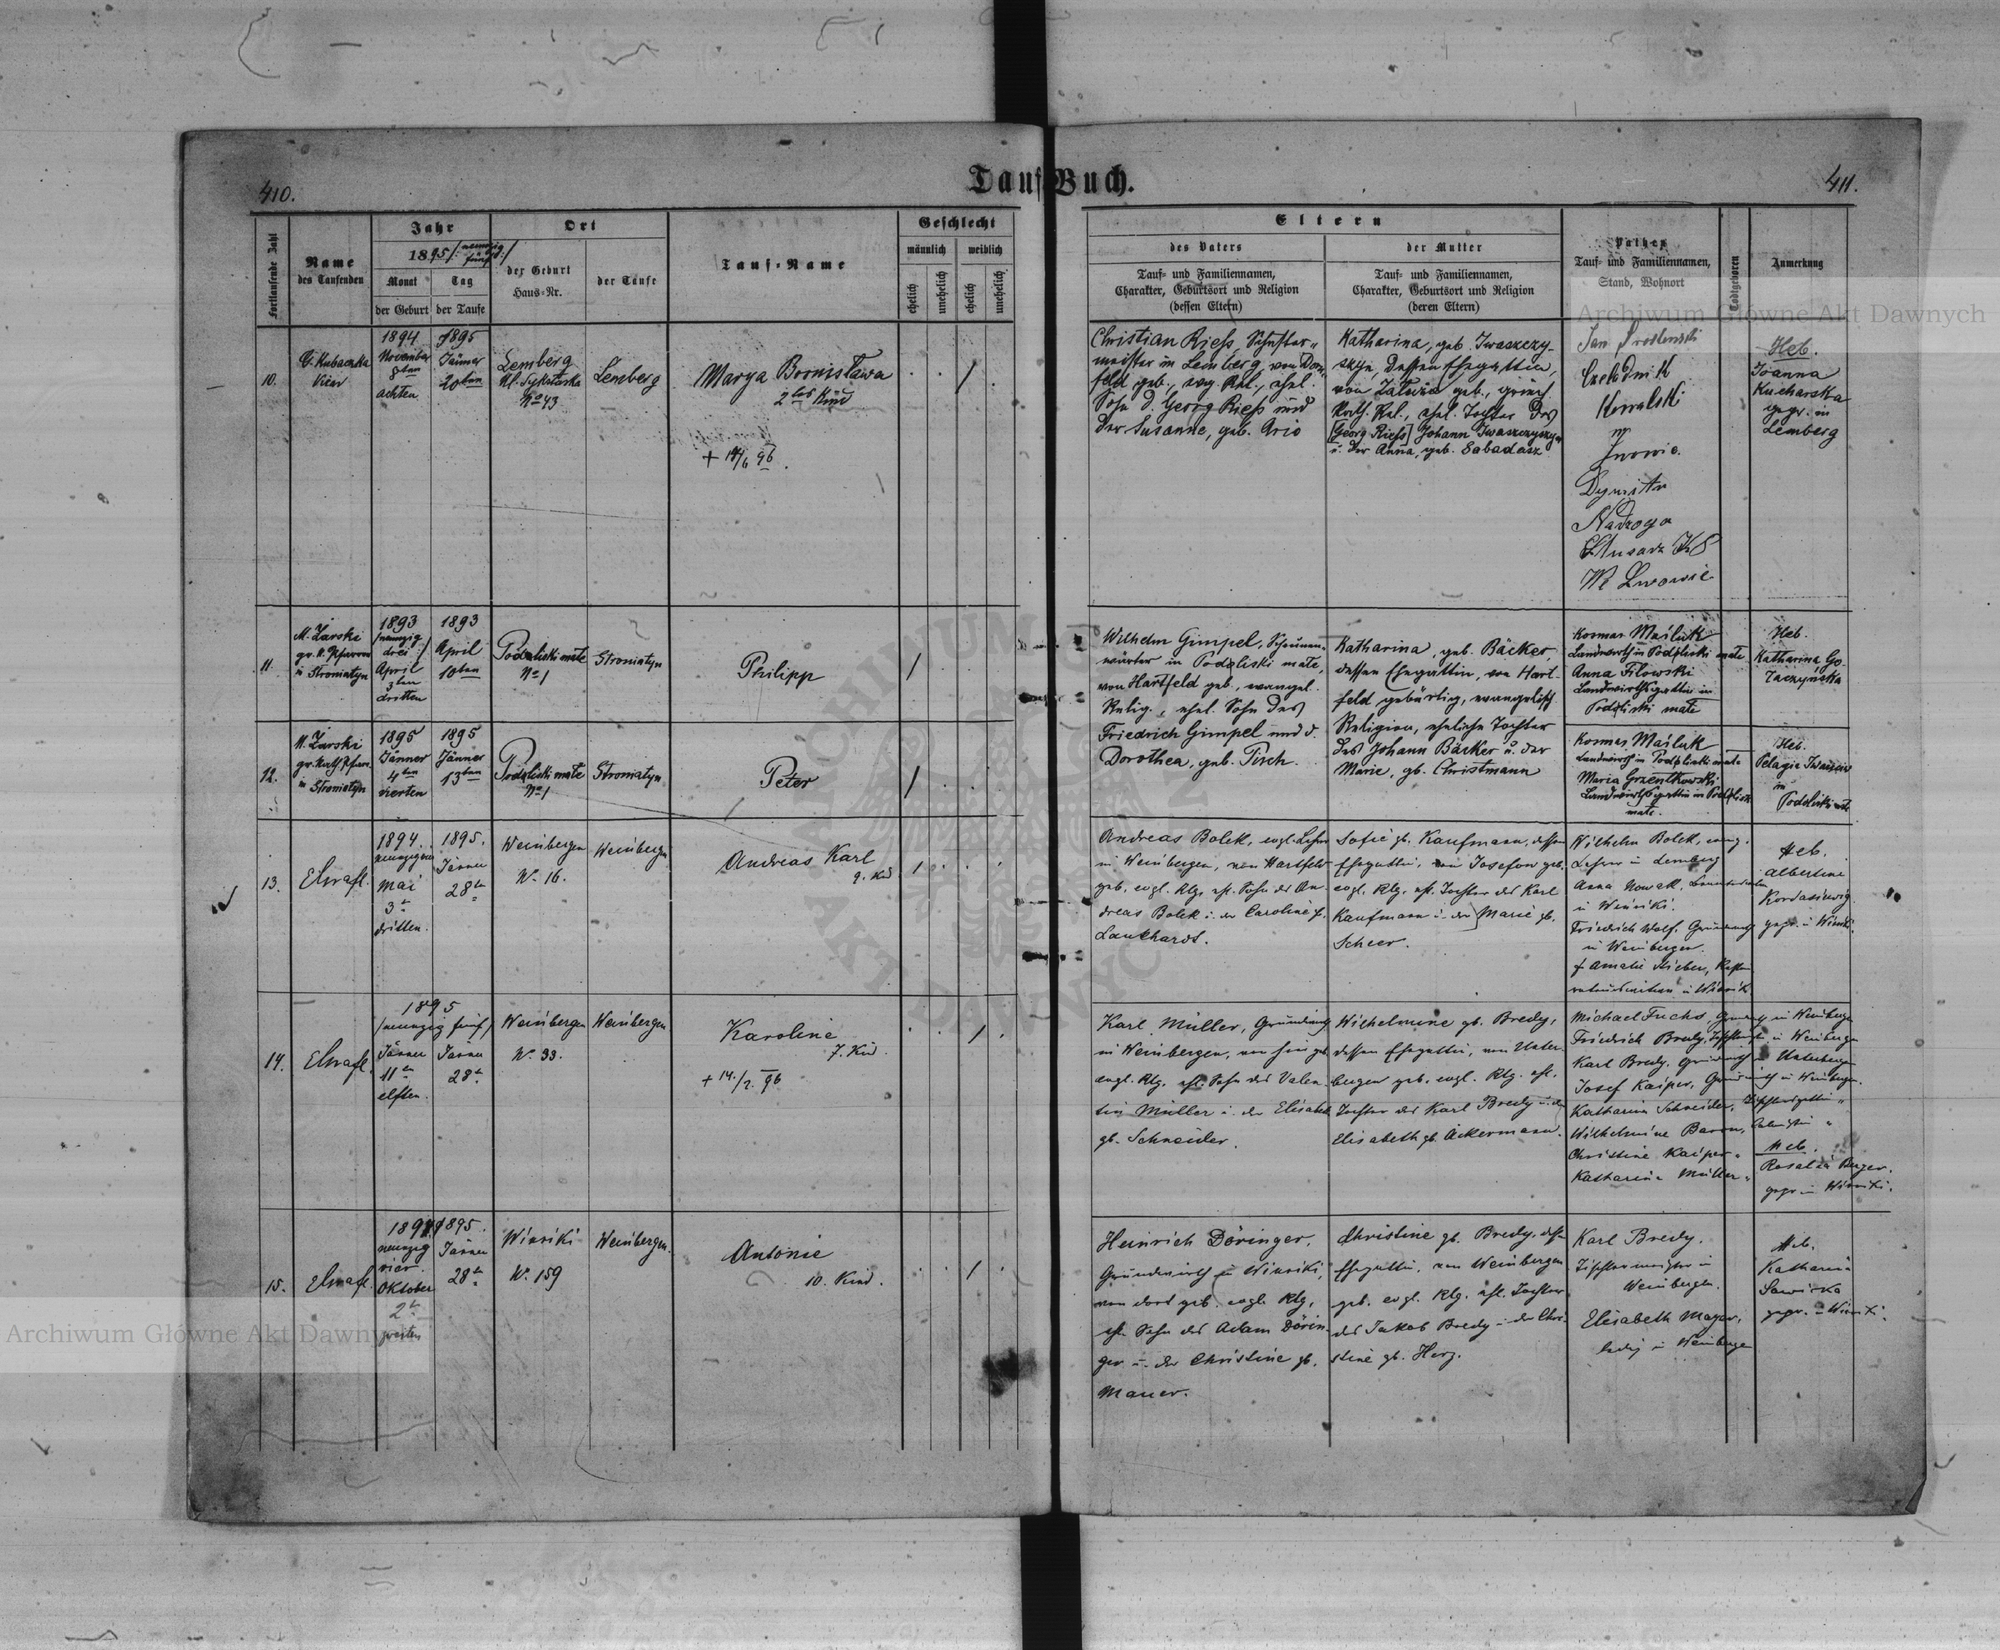 410.
Tauf Buch.
411.
Fortlaufende Zahl
Name
des Taufenden
Jahr
1895 /: neunzig fünf :/
Monat
der Geburt
Tag
der Taufe
Ort
der Geburt
Haus-Nr.
der Taufe
Tauf-Name
Geschlecht
männlich
weiblich
ehelich
unehelich
ehelich
unehelich
Eltern
des Vaters
Tauf- und Familiennamen,
Charakter, Geburtsort und Religion
(dessen Eltern)
der Mutter
Tauf- und Familiennamen,
Charakter, Geburtsort und Religion
(deren Eltern)
Pathen
Tauf- und Familiennamen,
Stand, Wohnort
Todtgeboren
Anmerkung
Archiwum Główne Akt Dawnych
10.
Vicar
1894
November
8ten
achten
1895
Jänner
20ten
Lemberg
No 43
Lemberg
Marya Bronisława
2tes Kind
+ 14/6 96.
Christian Riess, Schuster-
meister in Lemberg, von Dorn-
feld geb., evg. Rel., ehel.
Sohn d. Georg Riess und
der Susanne, geb. Ario
Katharina, geb. Iwaszczy-
szyn, dessen Ehegattin,
von Załuże geb., griech.
kath. Rel., ehel. Tochter des
[Georg Riess] Johann Iwaszczyszyn
u. der Anna, geb. Sabadasz
Jan
Czeladnik
Kowalski
Dymitr
Nadzoga
We Lwowie
Heb.
Joanna
Kucharska
gepr. in
Lemberg
11.
M. Zarski
gr. k. Pfarrer
in Stroniatyn
1893
/neunzig
drei :/
April
3ten
dritten
1893
April
10ten
Podoliski małe
No 1
Stroniatyn
Philipp
Wilhelm Gimpel,
in Podoliski małe,
von Hartfeld geb., evangel.
Relig., ehel. Sohn des
Friedrich Gimpel und d.
Dorothea, geb. Pisch.
Katharina, geb. Bäcker,
dessen Ehegattin, von Hart-
feld gebürtig, evangelisch.
Religion, eheliche Tochter
des Johann Bäcker u. der
Marie, gb. Christmann
Kosmas Maśluk
Landwirth in Podoliski małe
Anna Filowski
Landwirthsgattin in
Podoliski małe
Heb.
Katharina Go-
12.
M. Zarski
gr. kath. Pfarr.
in Stroniatyn
1895
Jänner
4ten
vierten
1895
Jänner
13ten
Podoliski małe
No 1
Stroniatyn
Peter
Kosmas Maśluk
Landwirth in Podoliski małe
Maria
Landwirthsgattin in Podoliski
małe.
Heb.
Pelagie
in
Podoliski małe
13.
1894.
Mai
3t
dritten.
1895.
Jänner
28t
Weinbergen
Nr. 16.
Weinbergen
Andreas Karl
9. Kind
Andreas Bolek, evgl. Lehrer
in Weinbergen, von Hartfeld
geb., evgl. Rlg., ehl. Sohn des An-
dreas Bolek u. der Caroline gb.
Lankhardt.
Sofie gb. Kaufmann, dessen
Ehegattin, von Josefow geb.
evgl. Rlg., ehl. Tochter des Karl
Kaufmann u. der Marie gb.
Scheer.
Wilhelm Bolek, evang.
Lehrer in Lemberg
Anna Nowak,
in Winniki.
Friedrich Wolf, Grundwirth
in Weinbergen.
Amalie
in Winniki
Heb.
Albertine
gepr. in Winniki.
14.
1895
/neunzig fünf/
Jänner
11ten
elften.
Jänner
28t
Weinbergen
Nr. 33.
Weinbergen
Karoline
7. Kind
+ 14./2. 96
Karl Müller, Grundwirth
in Weinbergen, von hier geb.
evgl. Rlg. ehl. Sohn des Valen-
tin Müller u. der Elisabeth
gb. Schneider.
Wilhelmine gb. Bredy,
dessen Ehegattin, von Unter-
bergen geb. evgl. Rlg. ehl.
Tochter des Karl Bredy u. der
Elisabeth gb. Ackermann.
Michael Fuchs, Grundwirth in Weinbergen
Friedrich Bredy, Tischler in Weinbergen
Karl Bredy, Grundwirth in Unterbergen
Josef Kaiper, Grundwirth in Weinbergen.
Katharina Schneider, Tischlersgattin "
Wilhelmine Baron,
Christine Kaiper "
Katharina Müller "
Heb.
Rosalia Berger.
gepr. in Winniki.
15.
1894
neunzig
vier.
Oktober
2t
zweiten
1895.
Jänner
28t
Winniki
Nr. 159
Weinbergen.
Antonie
10. Kind.
Heinrich Döringer,
Grundwirth in Winniki,
von dort geb. evgl. Rlg.,
ehl. Sohn des Adam Dörin-
ger u. der Christine gb.
Mauer.
Christine gb. Bredy, dess.
Ehegattin, von Weinbergen
geb. evgl. Rlg. ehl. Tochter
des Jakob Bredy u. der Chri-
stine gb. Herz.
Karl Bredy.
Tischlermeister in
Weinbergen.
Elisabeth Mayer,
ledig in Weinbergen
Heb.
Katharina
Sawicka
gepr. in Winniki.
Archiwum Główne Akt Dawnych
ARCHIWUM GŁÓWNE AKT DAWNYCH